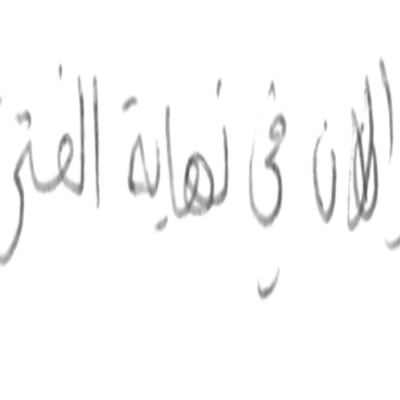 الان في نهاية الفتر